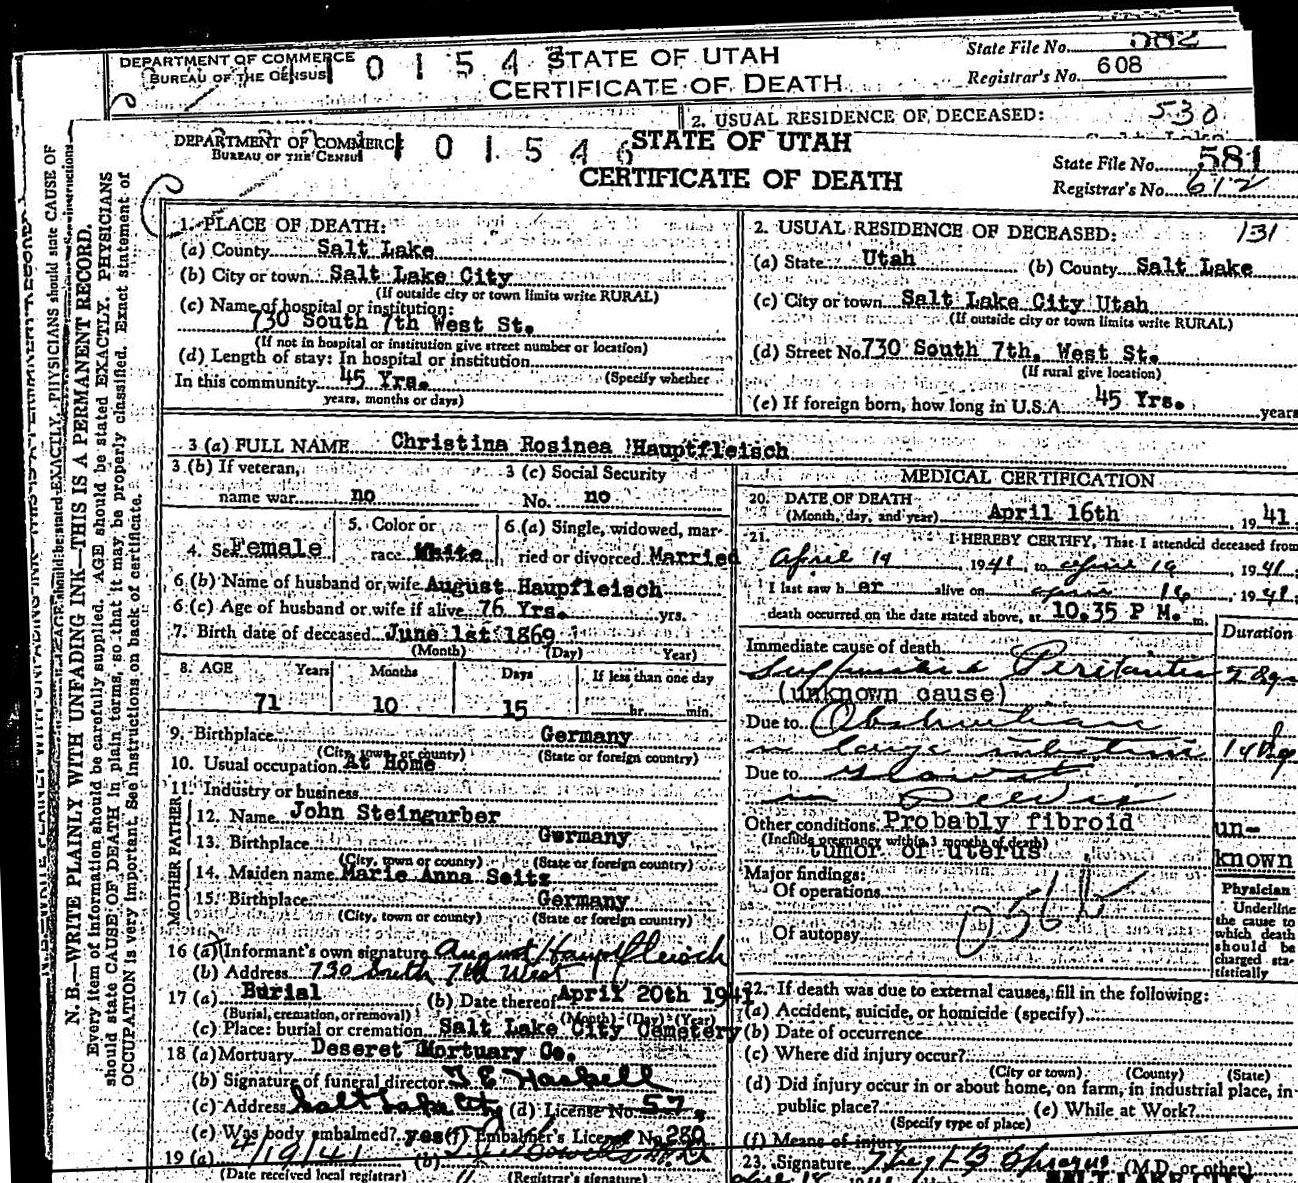 DEPARTMENT OF COMMERCE
BUREAU OF THE CENSUS
1 0 1 5 4
STATE OF UTAH
CERTIFICATE OF DEATH
State File No. 582
Registrar's No. 608
2. USUAL RESIDENCE OF DECEASED: 530
DEPARTMENT OF COMMERCE
BUREAU OF THE CENSUS
1 0 1 5 4 6
STATE OF UTAH
CERTIFICATE OF DEATH
State File No. 581
Registrar's No. 612
N. B.—WRITE PLAINLY WITH UNFADING INK—THIS IS A PERMANENT RECORD.
Every item of information should be carefully supplied. AGE should be stated EXACTLY. PHYSICIANS
should state CAUSE OF DEATH in plain terms, so that it may be properly classified. Exact statement of
OCCUPATION is very important. See instructions on back of certificate.
1. PLACE OF DEATH:
(a) County Salt Lake
(b) City or town Salt Lake City
(If outside city or town limits write RURAL)
(c) Name of hospital or institution:
730 South 7th West St.
(If not in hospital or institution give street number or location)
(d) Length of stay: In hospital or institution
(Specify whether
In this community 45 Yrs.
years, months or days)
2. USUAL RESIDENCE OF DECEASED: 131
(a) State Utah (b) County Salt Lake
(c) City or town Salt Lake City Utah
(If outside city or town limits write RURAL)
(d) Street No. 730 South 7th. West St.
(If rural give location)
(e) If foreign born, how long in U.S.A. 45 Yrs. years
3 (a) FULL NAME Christina Rosinea Hauptfleisch
3 (b) If veteran, name war no
3 (c) Social Security No. no
4. Sex Female
5. Color or race White
6. (a) Single, widowed, married or divorced Married
6 (b) Name of husband or wife August Haupfleisch
6 (c) Age of husband or wife if alive 76 Yrs. yrs.
7. Birth date of deceased June 1st 1869
(Month) (Day) Year)
8. AGE Years Months Days If less than one day
71 10 15 hr. min.
9. Birthplace Germany
(City, town, or county) (State or foreign country)
10. Usual occupation At Home
11. Industry or business
FATHER
12. Name John Steingurber
13. Birthplace Germany
(City, town or county) (State or foreign country)
MOTHER
14. Maiden name Marie Anna Seitz
15. Birthplace Germany
(City, town or county) (State or foreign country)
16 (a) Informant's own signature August Haupfleisch
(b) Address 730 South 7th West
17 (a) Burial (b) Date thereof April 20th 1941
(Burial, cremation, or removal) (Month) (Day) (Year)
(c) Place: burial or cremation Salt Lake City Cemetery
18 (a) Mortuary Deseret Mortuary Co.
(b) Signature of funeral director
(c) Address Salt Lake City (d) License No. 57
(e) Was body embalmed? yes (f) Embalmer's License No. 280
19 (a) 4/19/41 (b)
(Date received local registrar) (Registrar's signature)
MEDICAL CERTIFICATION
20. DATE OF DEATH
(Month, day, and year) April 16th, 1941.
21. I HEREBY CERTIFY, That I attended deceased from
April 1941, to April 1941.
I last saw h er alive on April 16, 1941;
death occurred on the date stated above, at 10.35 P M. m.
Duration
Immediate cause of death
Suppurative Peritonitis 2 dys
(unknown cause)
Due to Obstruction
in large intestine 14 dys
Due to Growth
in Pelvis
Other conditions Probably fibroid
(Include pregnancy within 3 months of death)
tumor of uterus
un-
known
Major findings:
Of operations
Of autopsy
Physician
Underline
the cause to
which death
should be
charged sta-
tistically
22. If death was due to external causes, fill in the following:
(a) Accident, suicide, or homicide (specify)
(b) Date of occurrence
(c) Where did injury occur?
(City or town) (County) (State)
(d) Did injury occur in or about home, on farm, in industrial place, in
public place? (e) While at Work?
(Specify type of place)
(f) Means of injury
23. Signature (M.D. or other)
SALT LAKE CITY